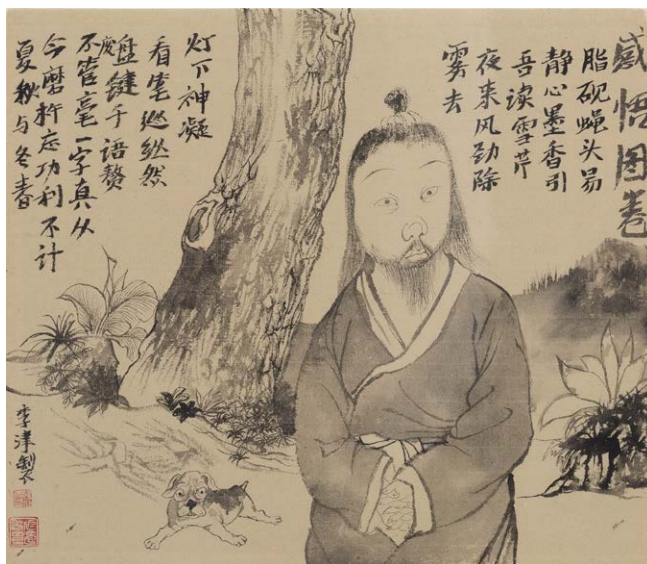 感悟图卷
脂砚蝇头易
静心墨香引
吾读雪芹
夜来风劲除
雾去
灯下神凝
看笔然
盘键千语赘
废
不毫一字真从
今磨杵忘功利不计
夏秋与冬春
李津製